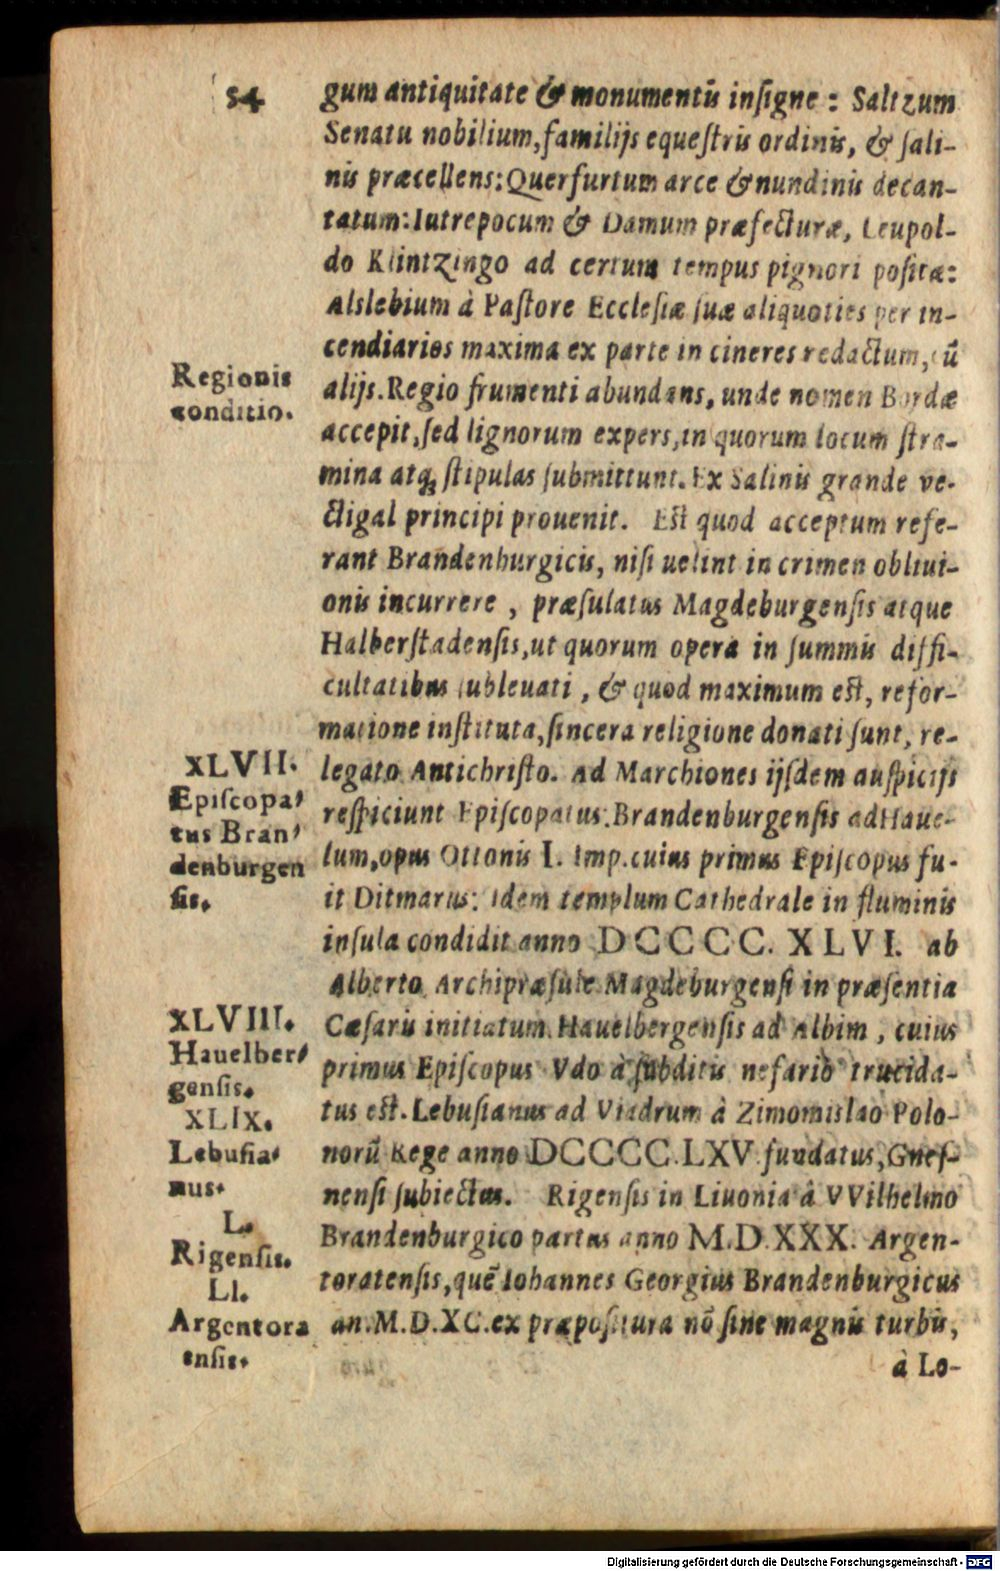 54
gum antiquitate & monumentis insigne: Saltzum
Senatu nobilium, familijs equestris ordinis, & sali-
nis præcellens: Querfurtum arce & nundinis decan-
tatum: Iutrepocum & Damum præfecturæ, Leupol-
do Klintzingo ad certum tempus pignori positæ:
Alslebium à Pastore Ecclesiæ suæ aliquoties per in-
cendiarios maxima ex parte in cineres redactum, cū
Regionis
conditio.
alijs. Regio frumenti abundans, unde nomen Bordæ
accepit, sed lignorum expers, in quorum locum stra-
mina atq; stipulas submittunt. Ex Salinis grande ve-
ctigal principi prouenit. Est quod acceptum refe-
rant Brandenburgicis, nisi uelint in crimen obliui-
onis incurrere, præsulatus Magdeburgensis atque
Halberstadensis, ut quorum opera in summis diffi-
cultatibus subleuati, & quod maximum est, refor-
matione instituta, sincera religione donati sunt, re-
XLVII.
Episcopa-
tus Bran-
denburgen
sis.
legato Antichristo. Ad Marchiones ijsdem auspicijs
respiciunt Episcopatus: Brandenburgensis ad Haue-
lum, opus Ottonis I. Imp. cuius primus Episcopus fu-
it Ditmarus: Idem templum Cathedrale in fluminis
insula condidit anno DCCCC. XLVI. ab
Alberto Archipræsule Magdeburgensi in præsentia
XLVIII.
Hauelber-
gensis.
Cæsaris initiatum. Hauelbergensis ad Albim, cuius
primus Episcopus Vdo à subditis nefariò trucida-
XLIX.
Lebusia-
nus.
tus est. Lebusianus ad Viadrum à Zimomislao Polo-
norū Rege anno DCCCC.LXV fundatus, Gnes-
nensi subiectus. Rigensis in Liuonia à VVilhelmo
L.
Rigensis.
Brandenburgico partus anno M.D.XXX. Argen-
LI.
Argentora
ensis.
toratensis, quē Iohannes Georgius Brandenburgicus
an. M.D.XC. ex præpositura nō sine magnis turbis,
à Lo-
Digitalisierung gefördert durch die Deutsche Forschungsgemeinschaft - DFG